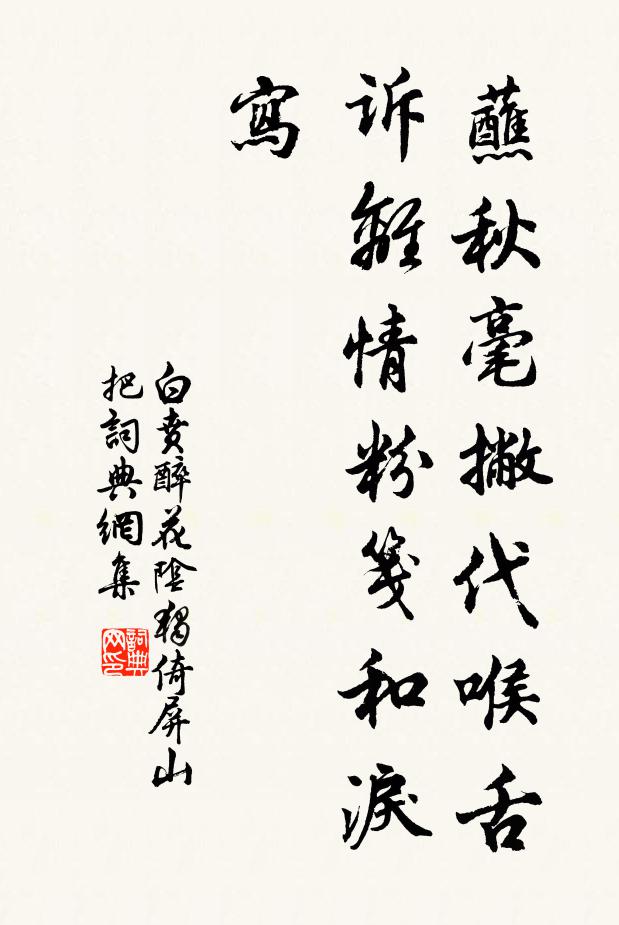 蘸秋毫撇代喉舌
訴離情粉箋和淚
寫
白賁醉花陰獨倚屏山
把詞典網集
詞典网印